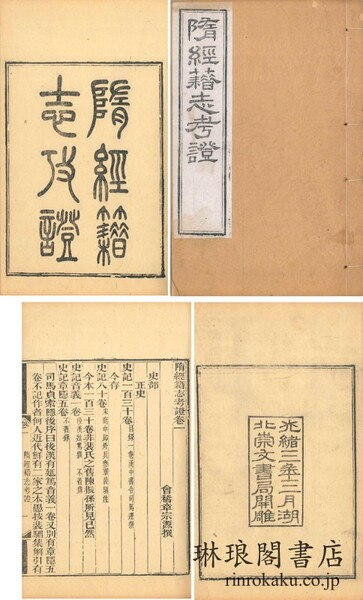 隋經籍
志攷證
隋經籍志考證
隋經籍志考證卷一
會稽章宗源撰
史部
正史
史記一百三十卷 目錄一卷漢中書令司馬遷撰
今存
史記八十卷 宋南中郎外兵參軍裴駰注
今本一百三十卷非裴氏之舊陳振孫所見已然
史記音義一卷 後漢延篤撰 不著錄
史記章隱五卷 不著錄
司馬貞索隱後序曰後漢有延篤音義一卷又別有章隱五
卷不記作者何人近代鮮有二家之本愚按裴駰集解引有
隋經籍志考證
光緒三年三月湖
北崇文書局開雕
琳琅閣書店
rinrokaku.co.jp